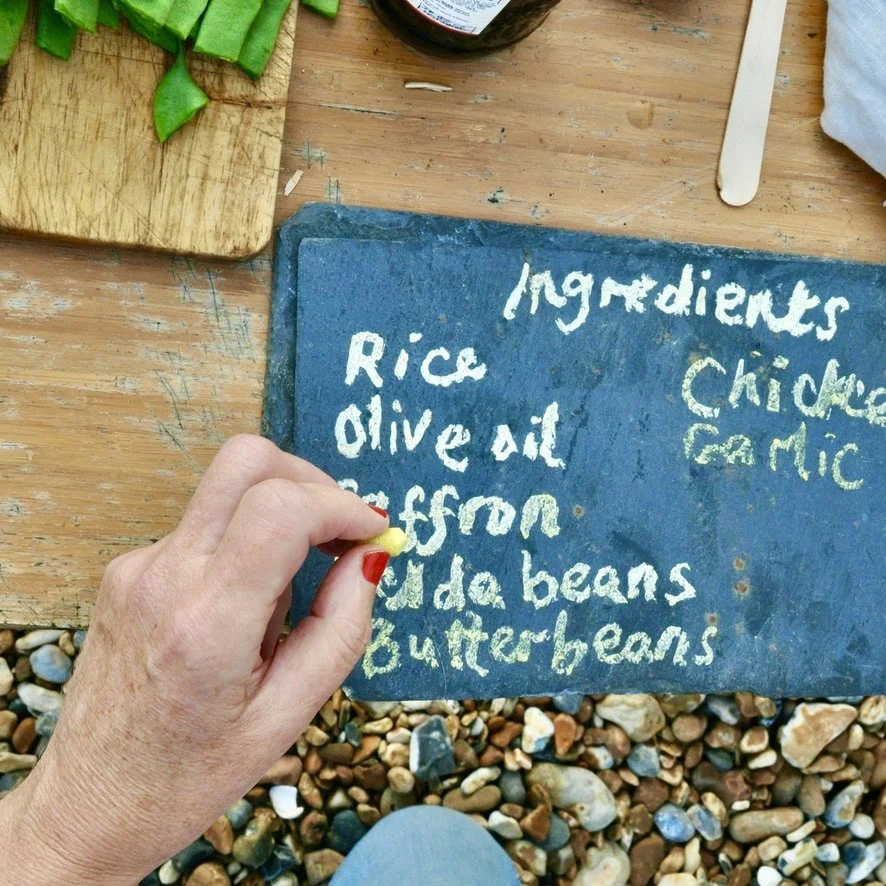 Ingredients
Rice
Olive oil
Saffron
elda beans
Butterbeans
Chicke
Garlic